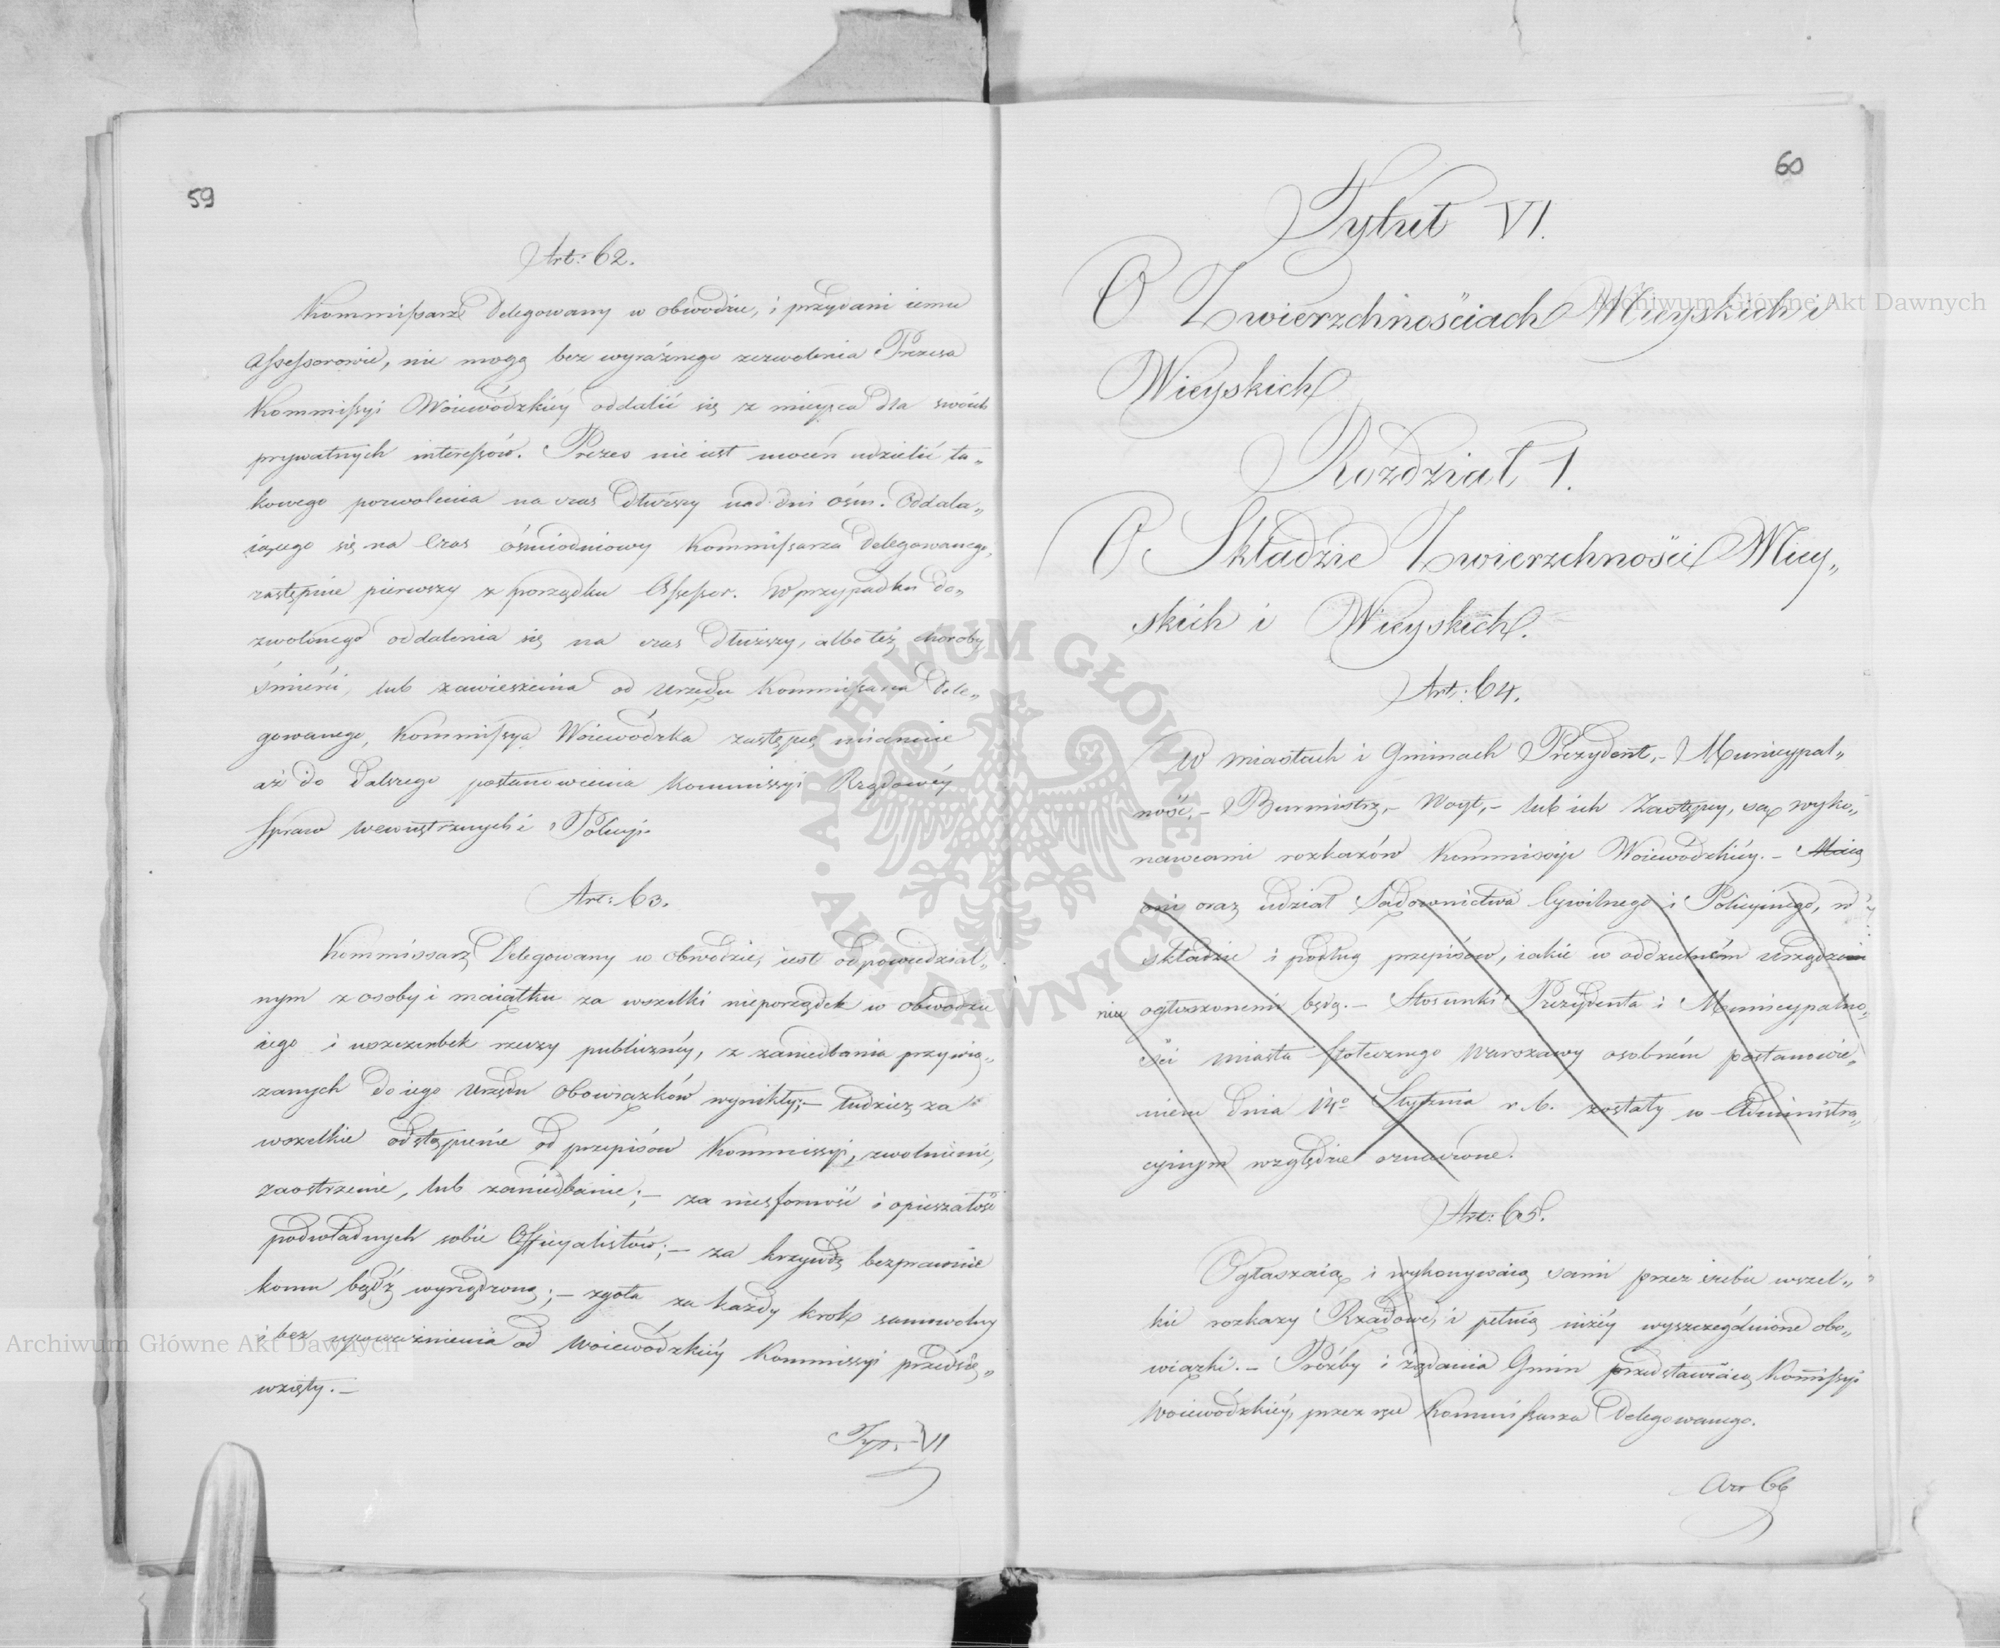 59
Art: 62.
Kommißarz Delegowany w obwodzie, i przydani iemu
Aßeßorowie, nie mogą bez wyraźnego zezwolenia Prezesa
Kommißyi Woiewódzkiéy oddalić się z mieysca dla swoich
prywatnych intereßów. Prezes nie iest mocen udzielić ta„
kowego pozwolenia na czas dłuższy nad dni ośm. Oddala„
iącego się na Czas ośmiodniowy Kommißarza Delegowanego,
zastępuie pierwszy z porządku Aßeßor. W przypadku do„
zwolonego oddalenia się na czas dłuższy, albo też choroby
śmierci, lub zawieszenia od Urzędu Kommißarza Dele„
gowanego, Kommißya Woiewódzka zastępcę mianuie
aż do dalszego postanowienia Kommissyi Rządowéy
Spraw wewnętrznych i Policyi.
Art: 63.
Kommissarz Delegowany w obwodzie, iest odpowiedzial„
nym z osoby i maiątku za wszelki nieporządek w obwodzie
iego i uszczerbek rzeczy publicznéy, z zaniedbania przywią„
zanych do iego Urzędu Obowiązków wynikły; — tudzież za
wszelkie odstąpienie od przepisów Kommissyi, zwolnienie,
zaostrzenie, lub zaniedbanie; — za niesforność i opieszałość
podwładnych sobie Officyalistów; — za krzywdę bezprawnie
komu bądź wyrządzoną; — zgoła za każdy krok samowolny
i bez upoważnienia od Woiewódzkiéy Kommissyi przedsię„
wzięty. —
Tyt. VI
60
Tytuł VI.
O Zwierzchnościach Mieyskich i
Wieyskich
Rozdział 1.
O Składzie Zwierzchności Miey„
skich i Wieyskich.
Art: 64.
W miastach i Gminach Prezydent, – Municypal„
ność, – Burmistrz, – Woyt, – lub ich Zastępcy, są wyko„
nawcami rozkazów Kommissyi Woiewódzkiéy. – Maią
oni oraz udział Sądownictwa Cywilnego i Policyinego, w
składzie i podług przepisów, iakie w oddzielném urządze
niu ogłoszonemi będą. – Stosunki Prezydenta i Municypalno„
ści miasta Stołecznego Warszawy osobném postanowie„
niem dnia 14º Stycznia r. b. zostały w Administra„
cyinym względzie oznaczone.
Art: 65.
Ogłaszaią i wykonywaią sami przez siebie wszel„
kie rozkazy Rządowe, i pełnią niżéy wyszczególnione obo„
wiązki. – Proźby i żądania Gmin przedstawiaią Kom̄ißyi
Woiewódzkiéy, przez ręce Kommißarza Delegowanego.
Art 66
Archiwum Główne Akt Dawnych
Archiwum Główne Akt Dawnych
ARCHIWUM GŁÓWNE · AKT DAWNYCH ·